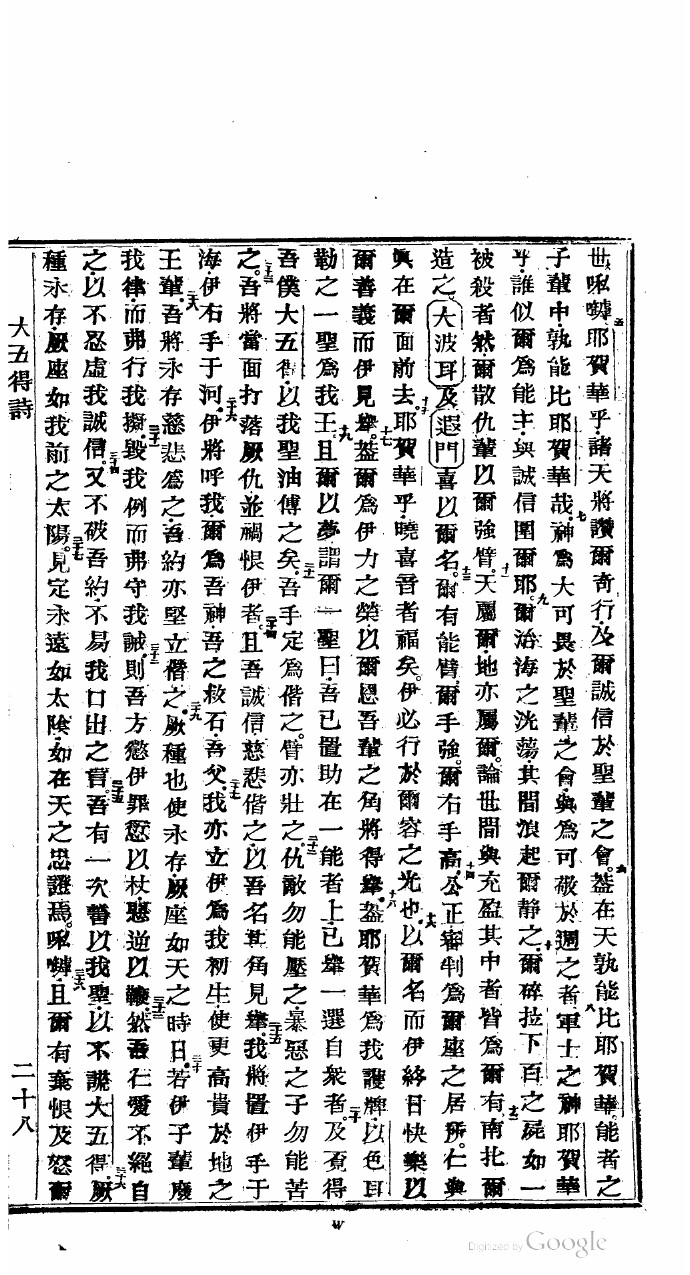 世㗑𡀔耶賀華乎諸天將讚爾奇行及爾誠信於聖輩之會蓋在天孰能比耶賀華能者之
子輩中孰能比耶賀華哉神為大可畏於聖輩之會與為可敬於週之者軍士之神耶賀華
乎誰似爾為能主與誠信圍爾耶爾治海之洸蕩其間浪起爾靜之爾碎拉下百之屍如一
被殺者然爾散仇輩以爾強臂天屬爾地亦屬爾論世間與充盈其中者皆為爾有南北爾
造之大波耳及遐門喜以爾名爾有能臂爾手強爾右手高公正審判為爾座之居所仁與
在爾面前去耶賀華乎曉喜音者福矣伊必行於爾容之光也以爾名而伊終日快樂以
爾善義而伊見舉蓋爾為伊力之榮以爾恩吾輩之角將得舉蓋耶賀華為我護牌以色耳
勒之一聖為我王且爾以夢謂爾一聖曰吾已置助在一能者上已舉一選自衆者及覔得
吾僕大五得以我聖油傅之矣吾手定為偕之臂亦壯之仇敵勿能壓之暴惡之子勿能苦
之吾將當面打落厥仇並禍恨伊者且吾誠信慈悲偕之以吾名其角見舉我將置伊手于
海伊右手于河伊將呼我爾為吾神吾之救石吾父我亦立伊為我初生使更高貴於地之
王輩吾將永存慈悲為之吾約亦堅立偕之厥種也使永存厥座如天之時日若伊子輩廢
我律而弗行我擬毀我例而弗守我誡則吾方懲伊罪愆以杖惡逆以鞭然吾仁愛不絕自
之以不忍虛我誠信又不破吾約不易我口出之言吾有一次誓以我聖以不謊大五得厥
種永存厥座如我前之太陽見定永遠如太陰如在天之忠證焉㗑𡀔且爾有棄恨及怒爾
大五得詩
二十八
w
Digitized by Google